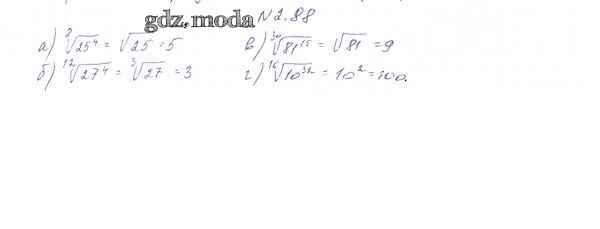 gdz.moda №2.88
а) ⁸√25⁴ = √25 = 5 в) ³⁰√81¹⁵ = √81 = 9
б) ¹²√27⁴ = ³√27 = 3 г) ¹⁶√10³² = 10² = 100.